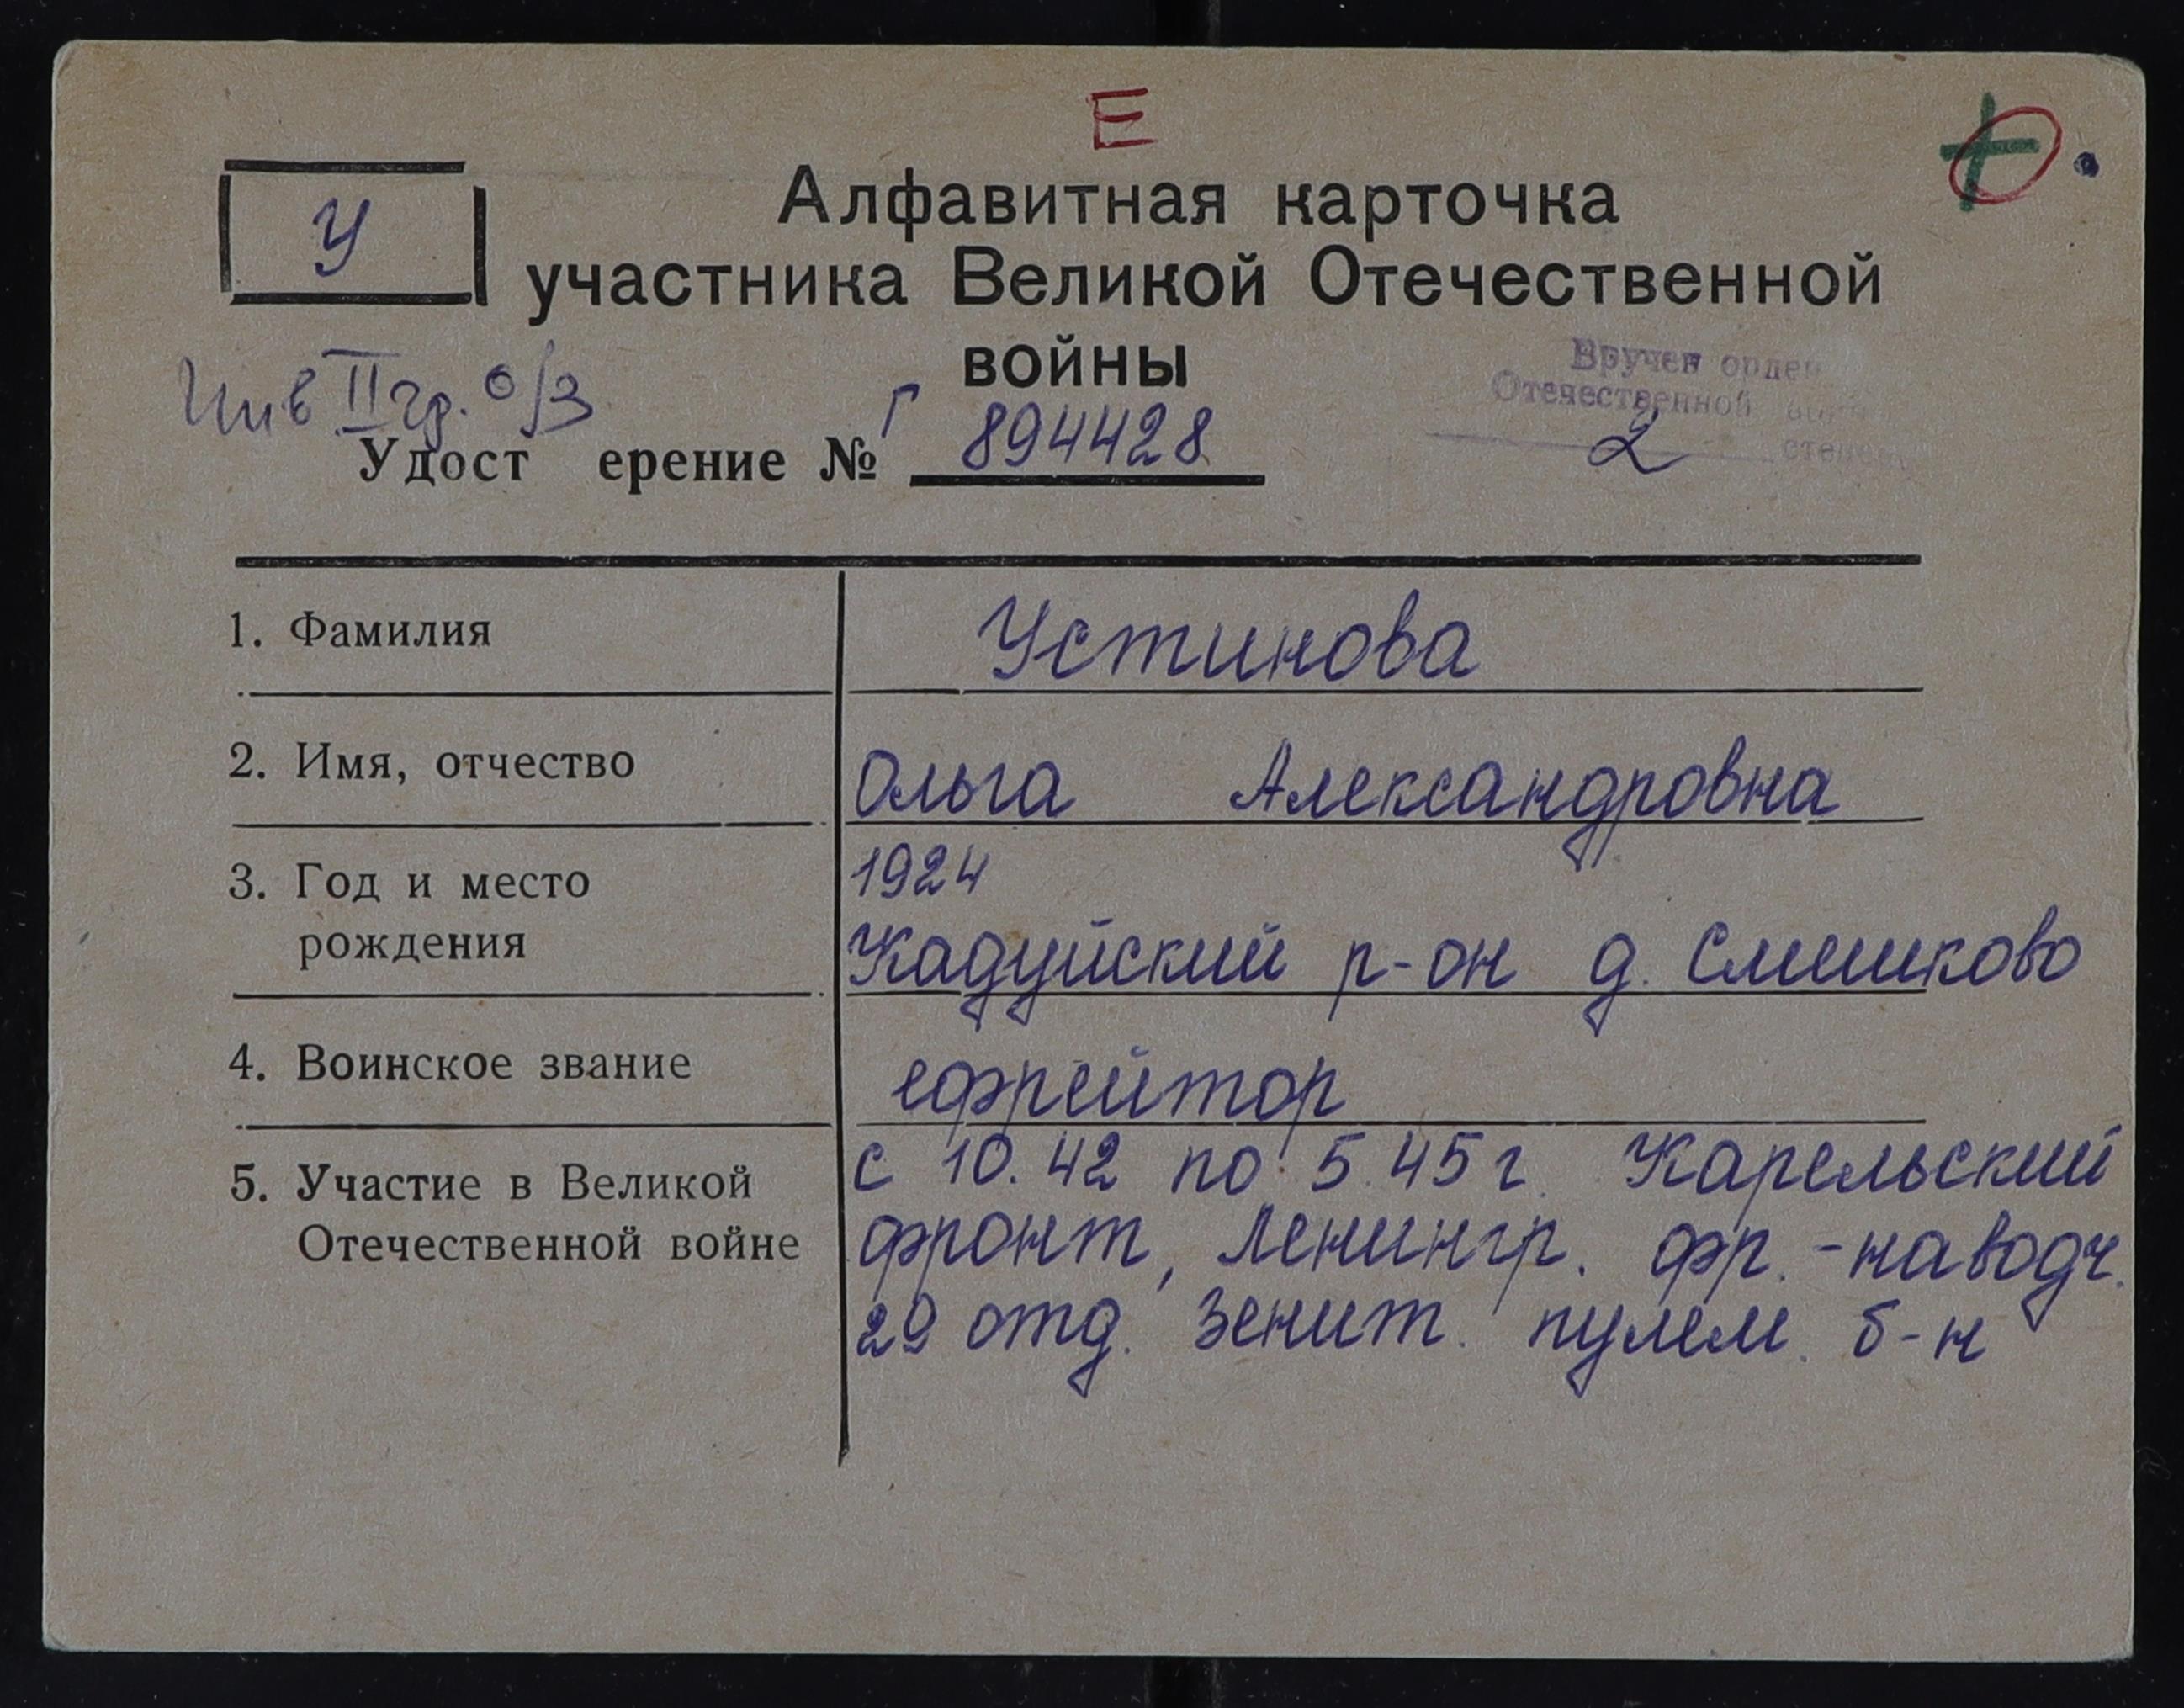 Е
У
Алфавитная карточка
участника Великой Отечественной
войны
Инв II гр. о/з
Вручен орден
Отечественной войны
2 степени
Удост ерение № Г 894428
1. Фамилия Устинова
2. Имя, отчество Ольга Александровна
3. Год и место 1924
рождения Кадуйский р-он д. Смешково
4. Воинское звание ефрейтор
5. Участие в Великой с 10.42 по 5.45 г. Карельский
Отечественной войне фронт, Ленингр. фр. - наводч.
29 отд. зенит. пулем. б-н